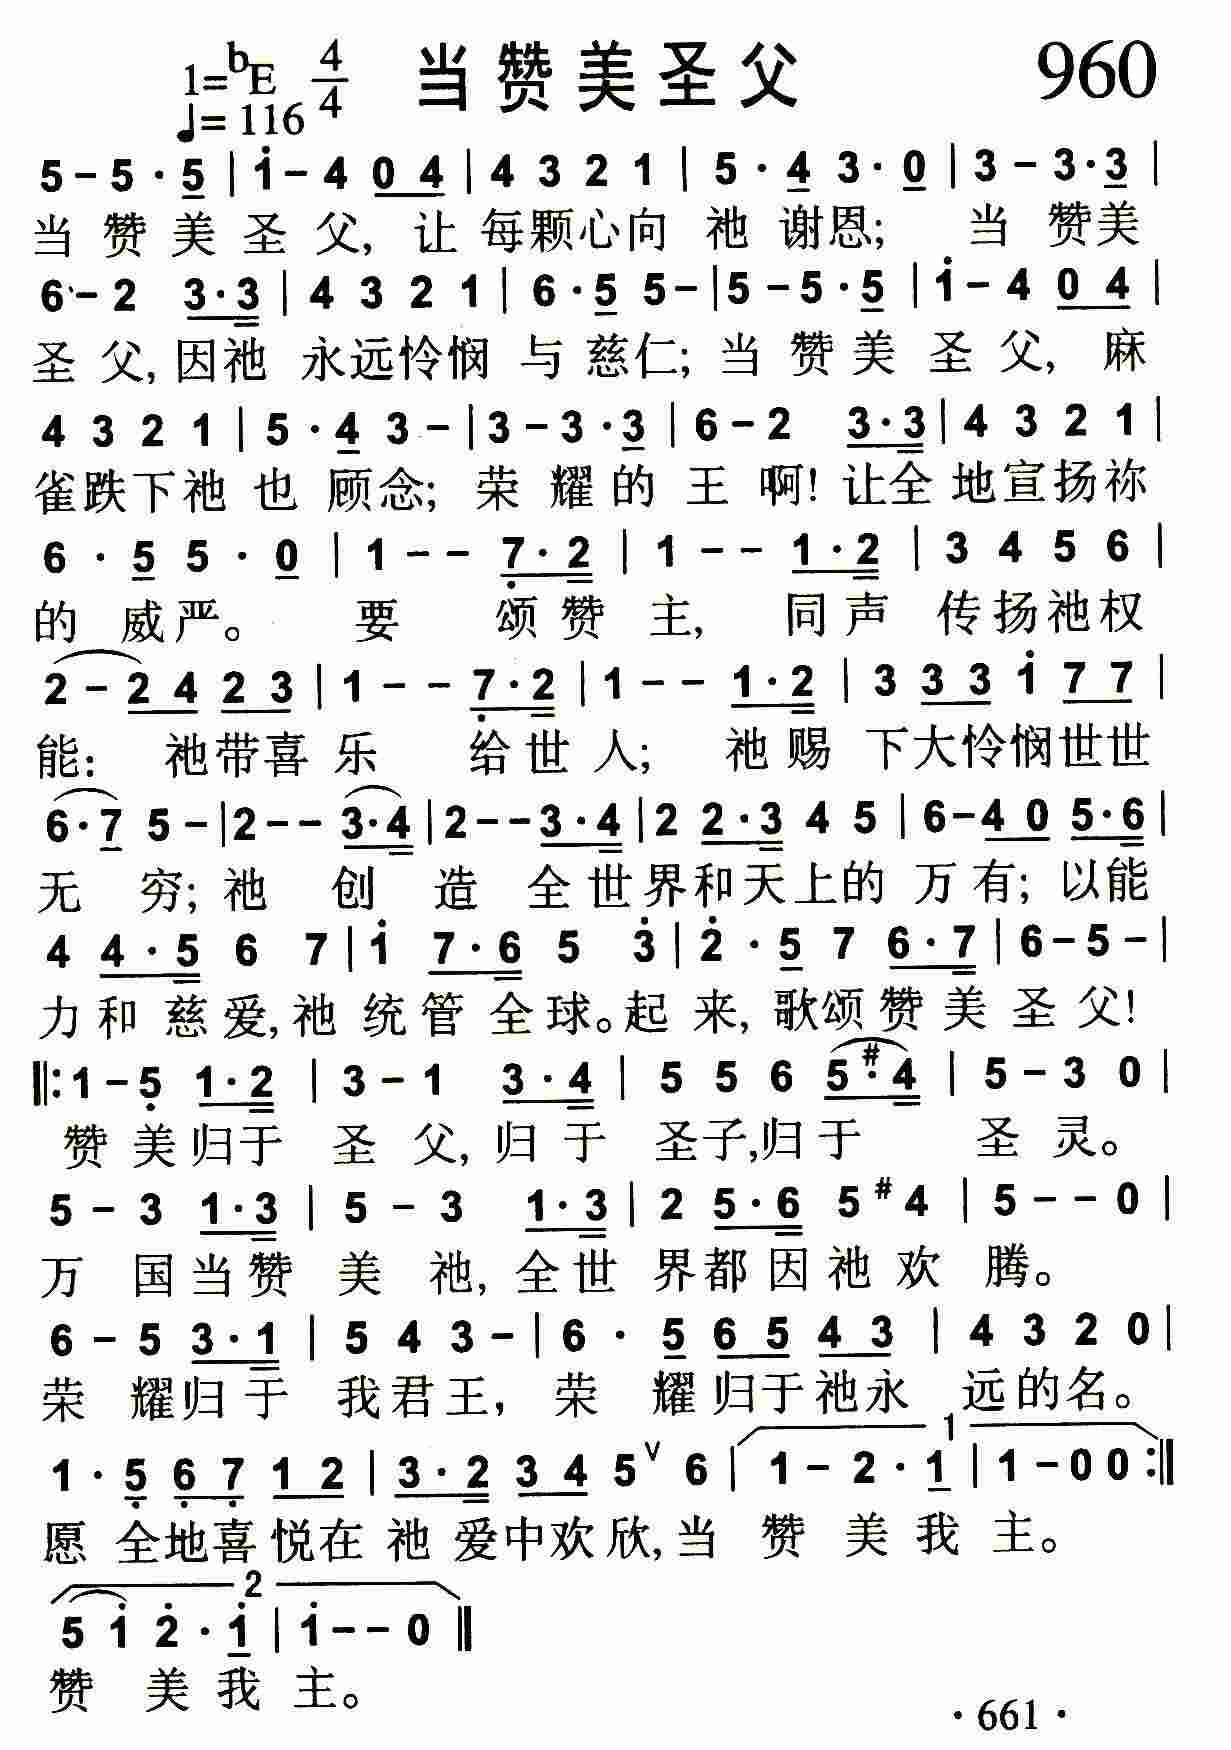 1=ᵇE 4/4 当赞美圣父 960
♩=116
5 – 5 · 5 | i – 4 0 4 | 4 3 2 1 | 5 · 4 3 · 0 | 3 – 3 · 3 |
当赞美圣父,让每颗心向祂谢恩;当赞美
6 – 2 3 · 3 | 4 3 2 1 | 6 · 5 5 – | 5 – 5 · 5 | i – 4 0 4 |
圣父,因祂永远怜悯与慈仁;当赞美圣父,麻
4 3 2 1 | 5 · 4 3 – | 3 – 3 · 3 | 6 – 2 3 · 3 | 4 3 2 1 |
雀跌下祂也顾念;荣耀的王啊!让全地宣扬祢
6 · 5 5 · 0 | 1 – – 7 · 2 | 1 – – 1 · 2 | 3 4 5 6 |
的威严。要颂赞主,同声传扬祂权
2 – 2 4 2 3 | 1 – – 7 · 2 | 1 – – 1 · 2 | 3 3 3 i 7 7 |
能:祂带喜乐给世人;祂赐下大怜悯世世
6 · 7 5 – | 2 – – 3 · 4 | 2 – – 3 · 4 | 2 2 · 3 4 5 | 6 – 4 0 5 · 6 |
无穷;祂创造全世界和天上的万有;以能
4 4 · 5 6 7 | i 7 · 6 5 3̇ | 2̇ · 5 7 6 · 7 | 6 – 5 – |
力和慈爱,祂统管全球。起来,歌颂赞美圣父!
‖: 1 – 5 1 · 2 | 3 – 1 3 · 4 | 5 5 6 5 · #4 | 5 – 3 0 |
赞美归于圣父,归于圣子,归于圣灵。
5 – 3 1 · 3 | 5 – 3 1 · 3 | 2 5 · 6 5 #4 | 5 – – 0 |
万国当赞美祂,全世界都因祂欢腾。
6 – 5 3 · 1 | 5 4 3 – | 6 · 5 6 5 4 3 | 4 3 2 0 |
荣耀归于我君王,荣耀归于祂永远的名。
1
1 · 5 6 7 1 2 | 3 · 2 3 4 5 ∨ 6 | 1 – 2 · 1 | 1 – 0 0 :‖
愿全地喜悦在祂爱中欢欣,当赞美我主。
2
5 i 2̇ · i | i – – 0 ‖
赞美我主。
· 661 ·